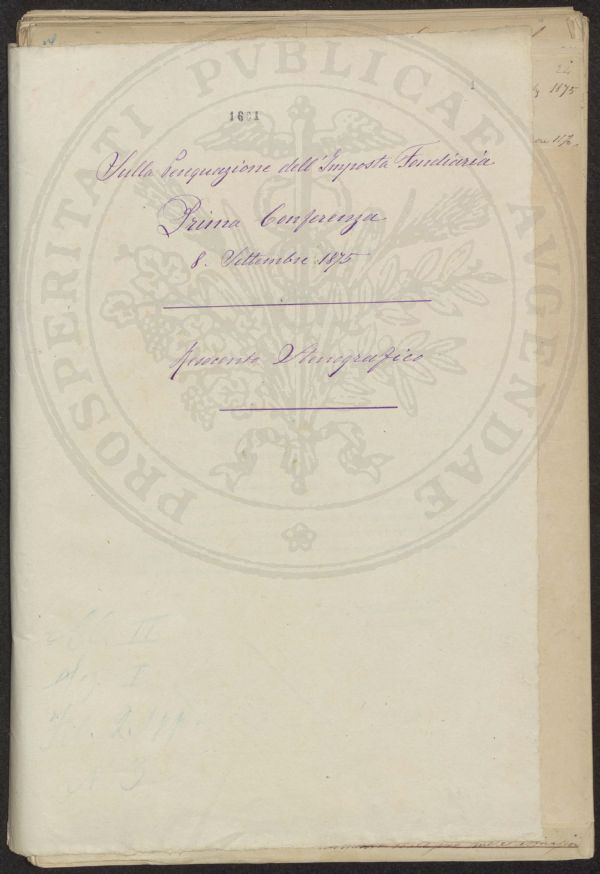 1
1661
Sulla Perequazione dell'Imposta Fondiaria
Prima Conferenza
8. Settembre 1875
Resoconto Stenografico
PROSPERITATI PVBLICAE AVGENDAE
24
1875
II
I
3